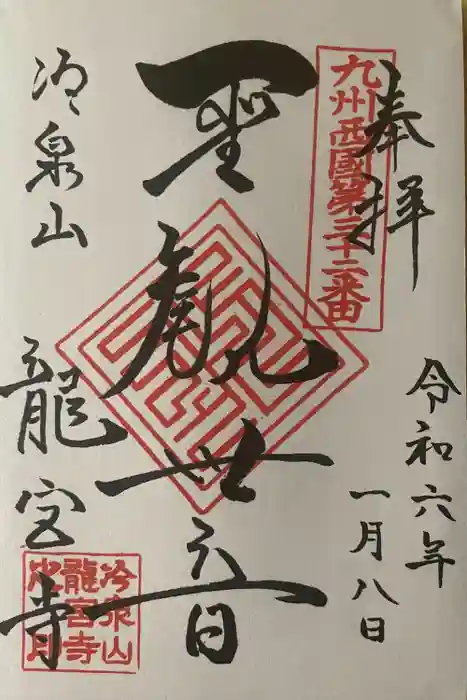 奉拝
九州西國第三十二番
令和六年
一月八日
聖観世音
冷泉山
龍宮寺
冷泉山
龍宮寺